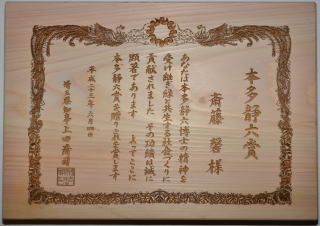 本多静六賞
斎藤 馨 様
あなたは本多静六博士の精神を
受け継ぎ緑と共生する社会づくりに
貢献されました その功績は誠に
顕著であります よってここに
本多静六賞を贈りこれを表します
平成二十三年 六月四日
埼玉県知事 上田清司